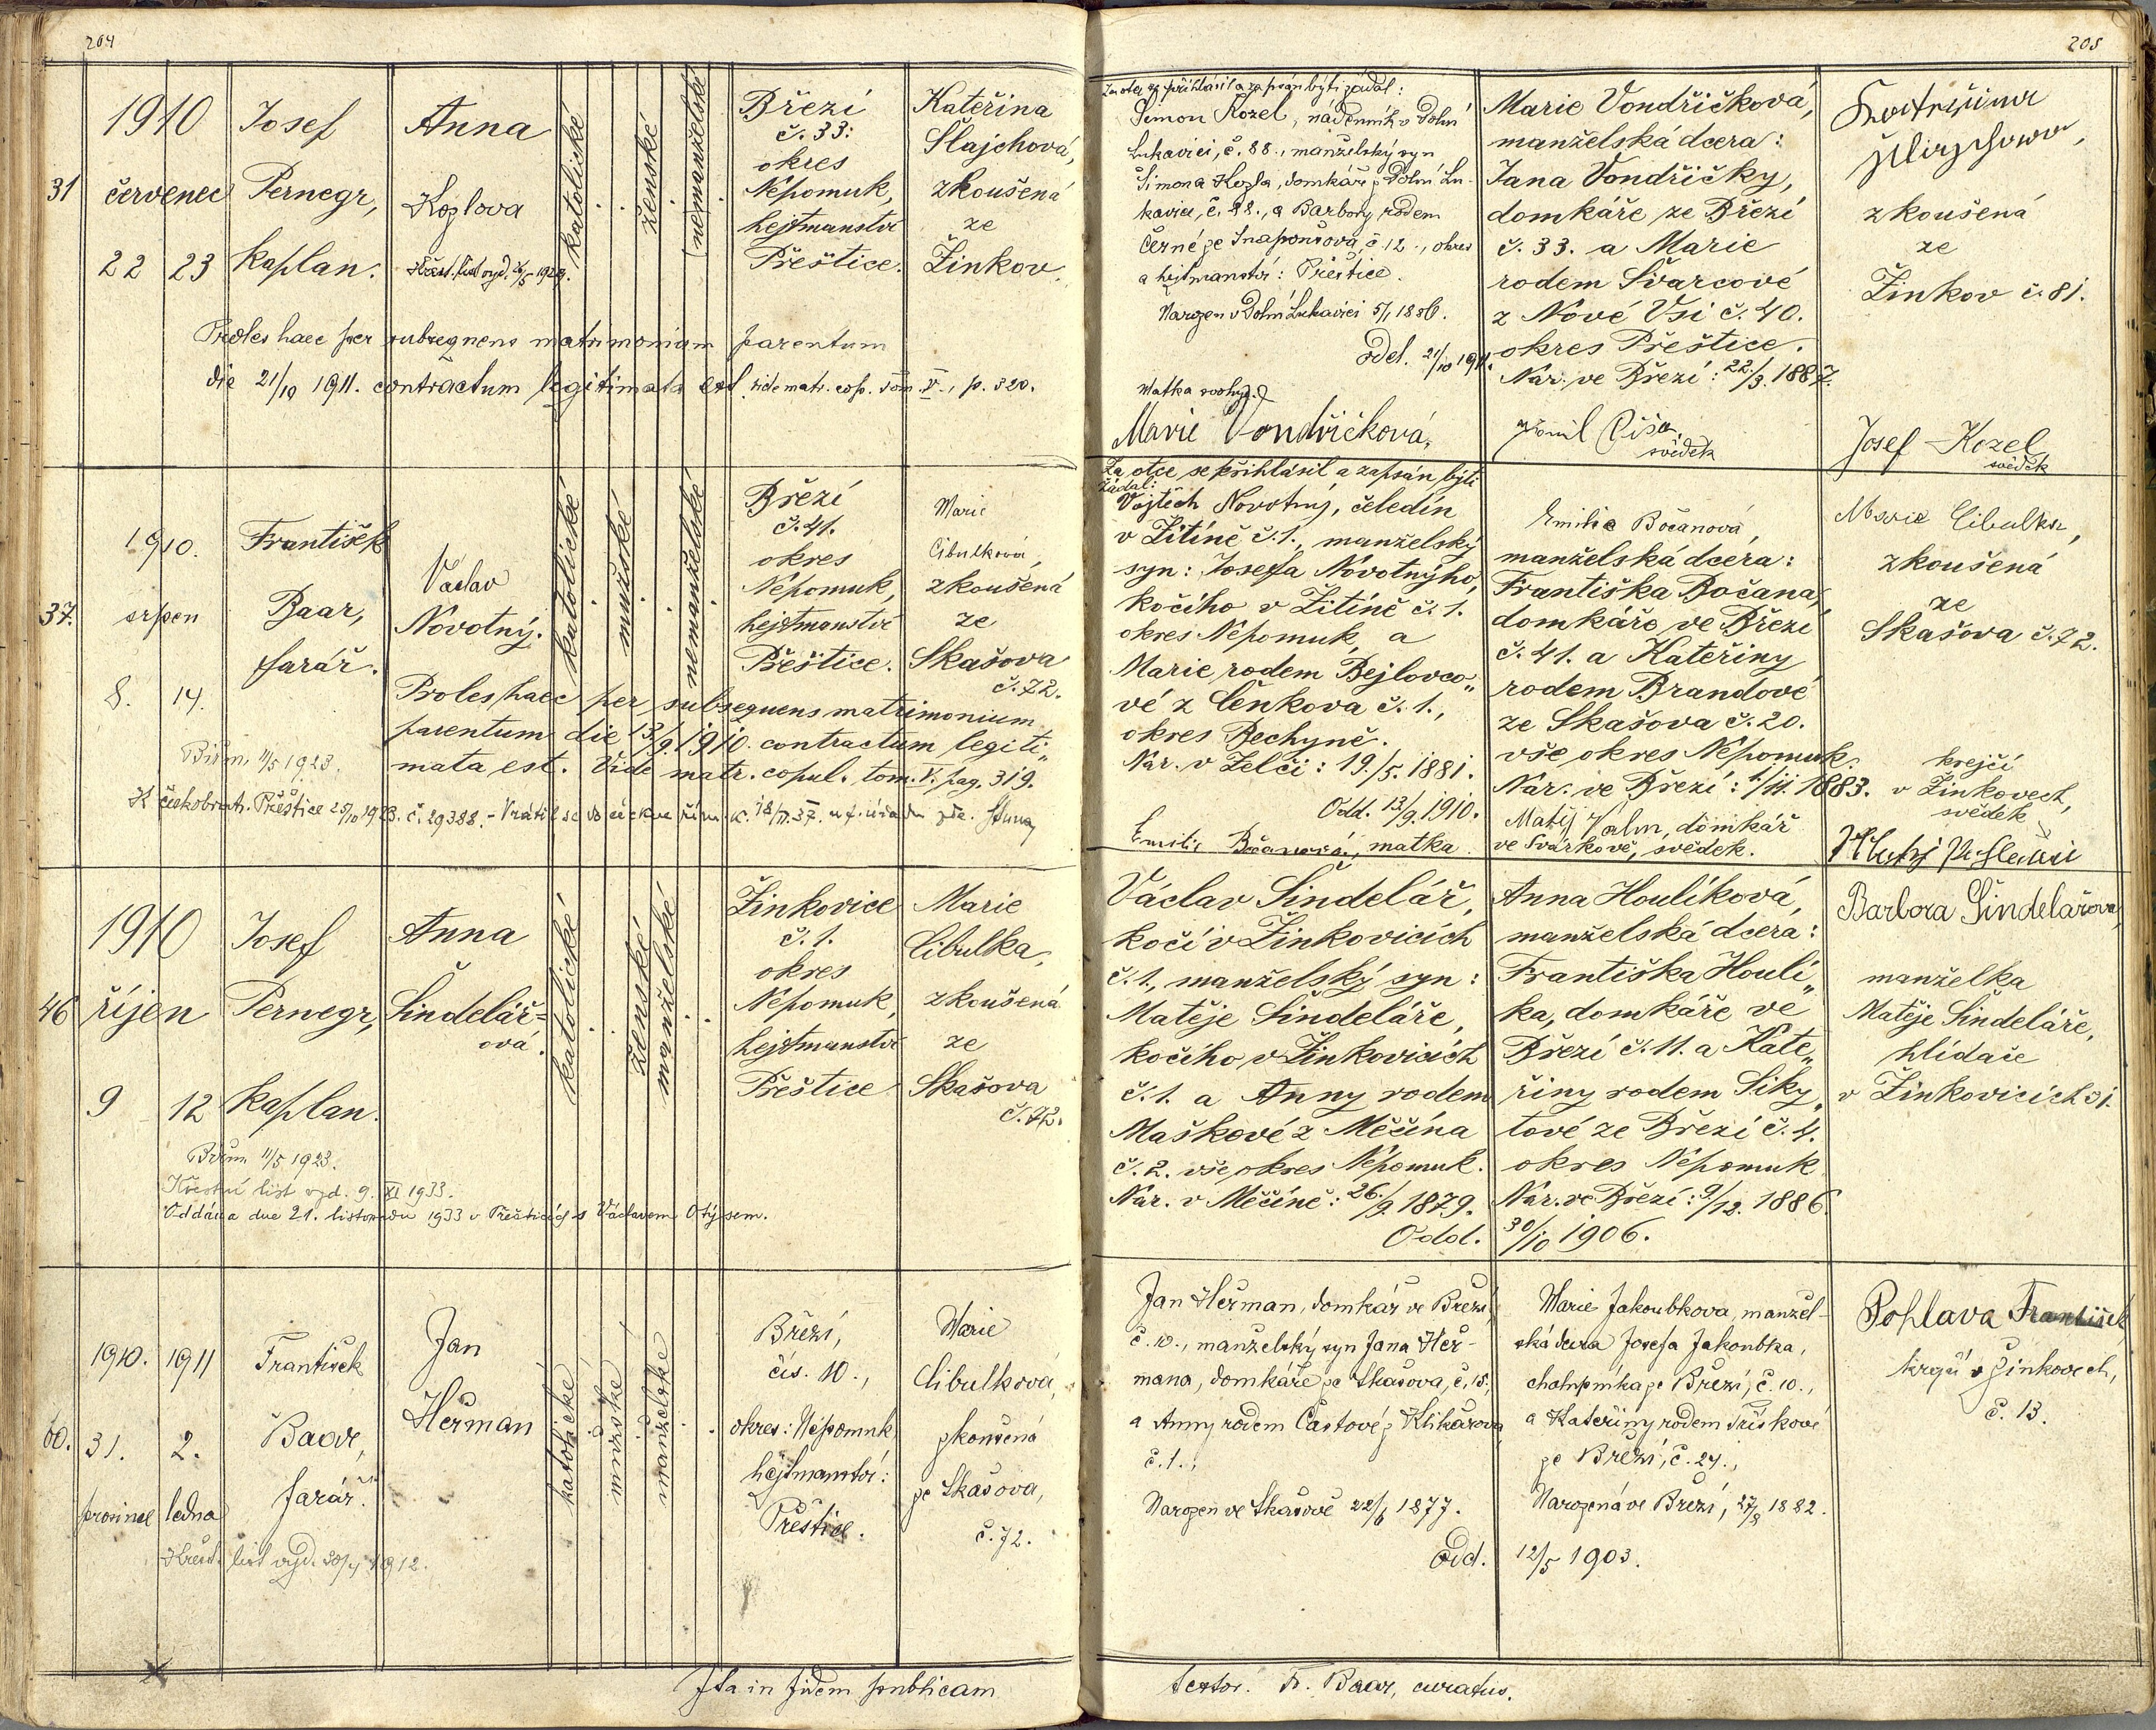 204
1910
31 červenec
22 23
Josef
Pernegr,
kaplan.
Anna
Kozlova
Křest. list vyd.
katolické
ženské
(nemanželské
Březí
č. 33:
okres
Nepomuk,
hejtmanství
Přeštice.
Kateřina
Šlajchová,
zkoušená
ze
Žinkov.
Proles haec per subsequens matrimonium parentum
die 21/10 1911. contractum legitimata est. vide matr. cop. tom. V., p. 320.
1910.
37. srpen
8. 14.
František
Baar,
farář.
Václav
Novotný.
katolické
mužské
nemanželské
Březí
č. 41.
okres
Nepomuk,
hejtmanství
Přeštice.
Marie
Cibulková,
zkoušená
ze
Skašova
č. 72.
Proles haec per subsequens matrimonium
parentum die 13/9. 1910. contractum legiti„
mata est. Vide matr. copul. tom. V. pag. 319.
Biřm. 11/5 1923.
K českobratr. Přeštice 25/10 1923. č. 29388. - Vrátil se do církve řím. k.
1910
46 říjen
9 12
Josef
Pernegr,
kaplan.
Anna
Šindelář=
ová.
katolické
ženské
manželské
Žinkovice
č. 1.
okres
Nepomuk,
hejtmanství
Přeštice
Marie
Cibulka,
zkoušená
ze
Skašova
č. 72.
Biřm. 11/5 1923.
Křestní list vyd. 9. XI 1933.
Oddána dne 21. listopadu 1933 v Přešticích s Václavem Otýsem.
1910. 1911
60. 31. 2.
prosince ledna
František
Baar,
farář.
Jan
Heřman
katolické
mužské
manželské
Březí,
čís. 10.,
okres: Nepomuk
hejtmanství:
Přeštice.
Marie
Cibulková,
zkoušená
ze Skašova,
č. 72.
Křest. list vyd. 30/4 1912.
Ita in fidem publicam
205
Za otce se přihlásil a zapsán býti žádal:
Šimon Kozel, nádenník v Dolní
Lukavici, č. 88., manželský syn
Šimona Kozla, domkáře z Dolní Lu-
kavice, č. 88., a Barbory rodem
Černé ze Snaponšova, č 12., okres
a hejtmanství: Přeštice.
Narozen v Dolní Lukavici 5/1 1886.
odd. 21/10 1911.
Matka svobodná
Marie Vondřičková,
Marie Vondřičková,
manželská dcera:
Jana Vondřičky,
domkáře ze Březí
č. 33. a Marie
rodem Švarcové
z Nové Vsi č. 40.
okres Přeštice.
Nar. ve Březí: 22./3. 1887.
svědek
zkoušená
ze
Žinkov č. 81.
Josef Kozel
svědek
Za otce se přihlásil a zapsán býti
žádal:
Vojtěch Novotný, čeledín
v Žitíně č. 1., manželský
syn: Josefa Novotnýho,
kočího v Žitíně č. 1.
okres Nepomuk, a
Marie, rodem Bejlovco„
vé z Čenkova č. 1.,
okres Bechyně.
Nar. v Želči: 19./5. 1881.
Odd. 13/9. 1910.
Emilie Bočanová, matka.
Emilie Bočanová,
manželská dcera:
Františka Bočana,
domkáře ve Březí
č. 41. a Kateřiny
rodem Brandové
ze Skašova č. 20.
vše okres Nepomuk.
Nar. ve Březí: 1/11. 1883.
Matěj Valm, domkář
ve Svárkově, svědek.
Marie Cibulka,
zkoušená
ze
Skašova č. 72.
krejčí
v Žinkovech,
svědek
Václav Šindelář,
kočí v Žinkovicích
č. 1., manželský syn:
Matěje Šindeláře,
kočího v Žinkovicích
č. 1. a Anny rodem
Maškové z Měčína
č. 2. vše okres Nepomuk.
Nar. v Měčíně: 26./9. 1879.
Odd.
Anna Houlíková,
manželská dcera:
Františka Houlí„
ka, domkáře ve
Březí č. 11. a Kate„
řiny rodem Siky„
tové ze Březí č. 4.
okres Nepomuk
Nar. ve Březí: 9/12. 1886.
30/10 1906.
Barbora Šindelářova,
manželka
Matěje Šindeláře,
hlídače
v Žinkovicích
Jan Heřman, domkář ve Březí,
č. 10., manželský syn Jana Heř-
mana, domkáře ze Skašova, č. 15.,
a Anny rodem Částové z Klikařova,
č. 1.,
Narozen ve Skašově 22/6 1877.
Odd.
Marie Jakoubkova, manžel-
ská dcera Josefa Jakoubka,
chalupníka ze Březí, č. 10.,
a Kateřiny rodem Tříškové
ze Březí, č. 24.,
Narozená ve Březí, 27/8 1882.
12/5 1903.
Pohlava František
krejčí v Žinkovech,
č. 13.
testor. Fr. Baar, curatus.